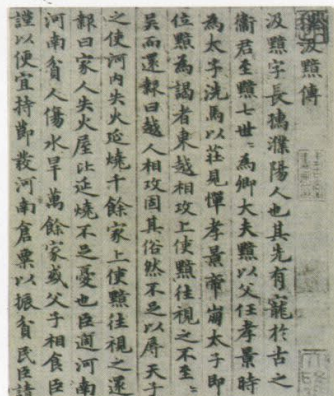 汲黯傳
汲黯字長孺濮陽人也其先有寵於古之
衞君至黯七世世為卿大夫黯以父任孝景時
為太子洗馬以莊見憚孝景帝崩太子即
位黯為謁者東越相攻上使黯往視之不至
吳而還報曰越人相攻固其俗然不足以辱天子
之使河內失火延燒千餘家上使黯往視之還
報曰家人失火屋比延燒不足憂也臣過河南
河南貧人傷水旱萬餘家或父子相食臣
謹以便宜持節發河南倉粟以振貧民臣請